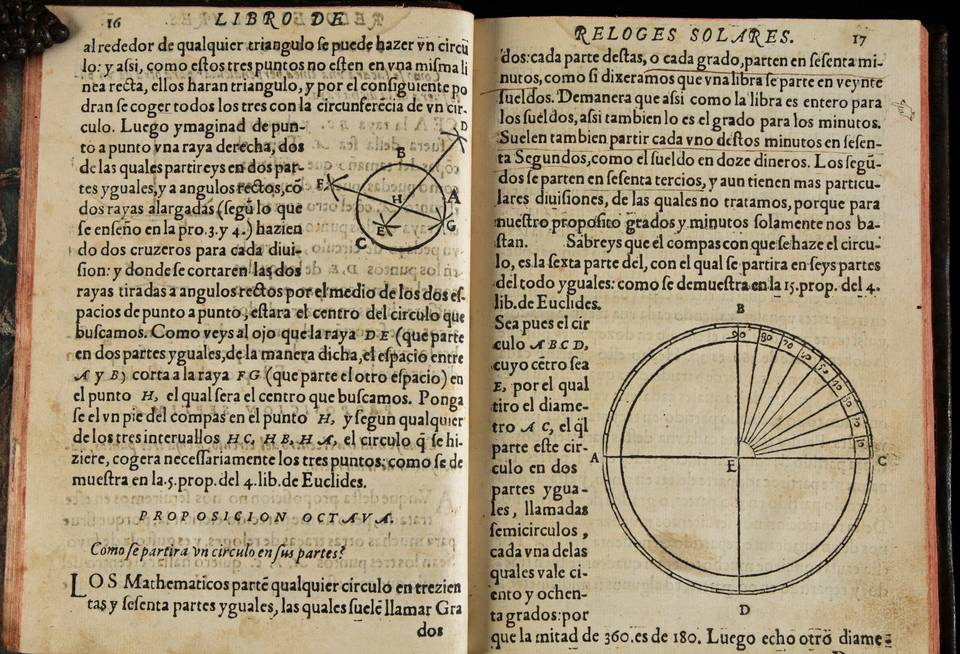 16 LIBRO DE
al rededor de qualquier triangulo ſe puede hazer vn circũ
lo: y aſsi, como eſtos tres puntos no eſten en vna miſma li
nea recta, ellos haran triangulo, y por el conſiguiente po
dran ſe coger todos los tres con la circunferẽcia de vn cir-
culo. Luego ymaginad de pun-
to a punto vna raya derecha, dos
de las quales partireys en dos par-
tes yguales, y a angulos rectos, cõ
dos rayas alargadas (ſegũ lo que
ſe enſeño en la pro. 3. y 4.) hazien
do dos cruzeros para cada diui-
ſion: y donde ſe cortaren las dos
rayas tiradas a angulos rectos por el medio de los dos eſ-
pacios de punto a punto, eſtara el centro del circulo que
buſcamos. Como veys al ojo que la raya D E (que parte
en dos partes yguales, de la manera dicha, el eſpacio entre
A y B) corta a la raya F G (que parte el otro eſpacio) en
el punto H, el qual ſera el centro que buſcamos. Ponga
ſe el vn pie del compas en el punto H, y ſegun qualquier
de los tres interuallos H C, H B, H A, el circulo q̃ ſe hi-
ziere, cogera neceſſariamente los tres puntos: como ſe de
mueſtra en la .5. prop. del 4. lib. de Euclides.
PROPOSICION OCTAVA.
Como ſe partira vn circulo en ſus partes?
LOS Mathematicos partẽ qualquier circulo en trezien
tas y ſeſenta partes yguales, las quales ſuelẽ llamar Gra
dos
D
B
F
H
A
E
G
C
RELOGES SOLARES. 17
dos: cada parte deſtas, o cada grado, parten en ſeſenta mi-
nutos, como ſi dixeramos que vna libra ſe parte en veynte
ſueldos. Demanera que aſsi como la libra es entero para
los ſueldos, aſsi tambien lo es el grado para los minutos.
Suelen tambien partir cada vno deſtos minutos en ſeſen-
ta Segundos, como el ſueldo en doze dineros. Los ſegũ-
dos ſe parten en ſeſenta tercios, y aun tienen mas particu-
lares diuiſiones, de las quales no tratamos, porque para
nueſtro propoſito grados y minutos ſolamente nos ba-
ſtan. Sabreys que el compas con que ſe haze el circu-
lo, es la ſexta parte del, con el qual ſe partira en ſeys partes
del todo yguales: como ſe demueſtra en la 15. prop. del 4.
lib. de Euclides.
Sea pues el cir
culo A B C D,
cuyo cẽtro ſea
E, por el qual
tiro el diame-
tro A C, el q̃l
parte eſte cir-
culo en dos
partes ygua-
les, llamadas
ſemicirculos,
cada vna delas
quales vale ci-
ento y ochen-
ta grados: por
que la mitad de 360. es de 180. Luego echo otro diame-
B
90 80 70 60 50 40 30 20 10
A
E
C
D